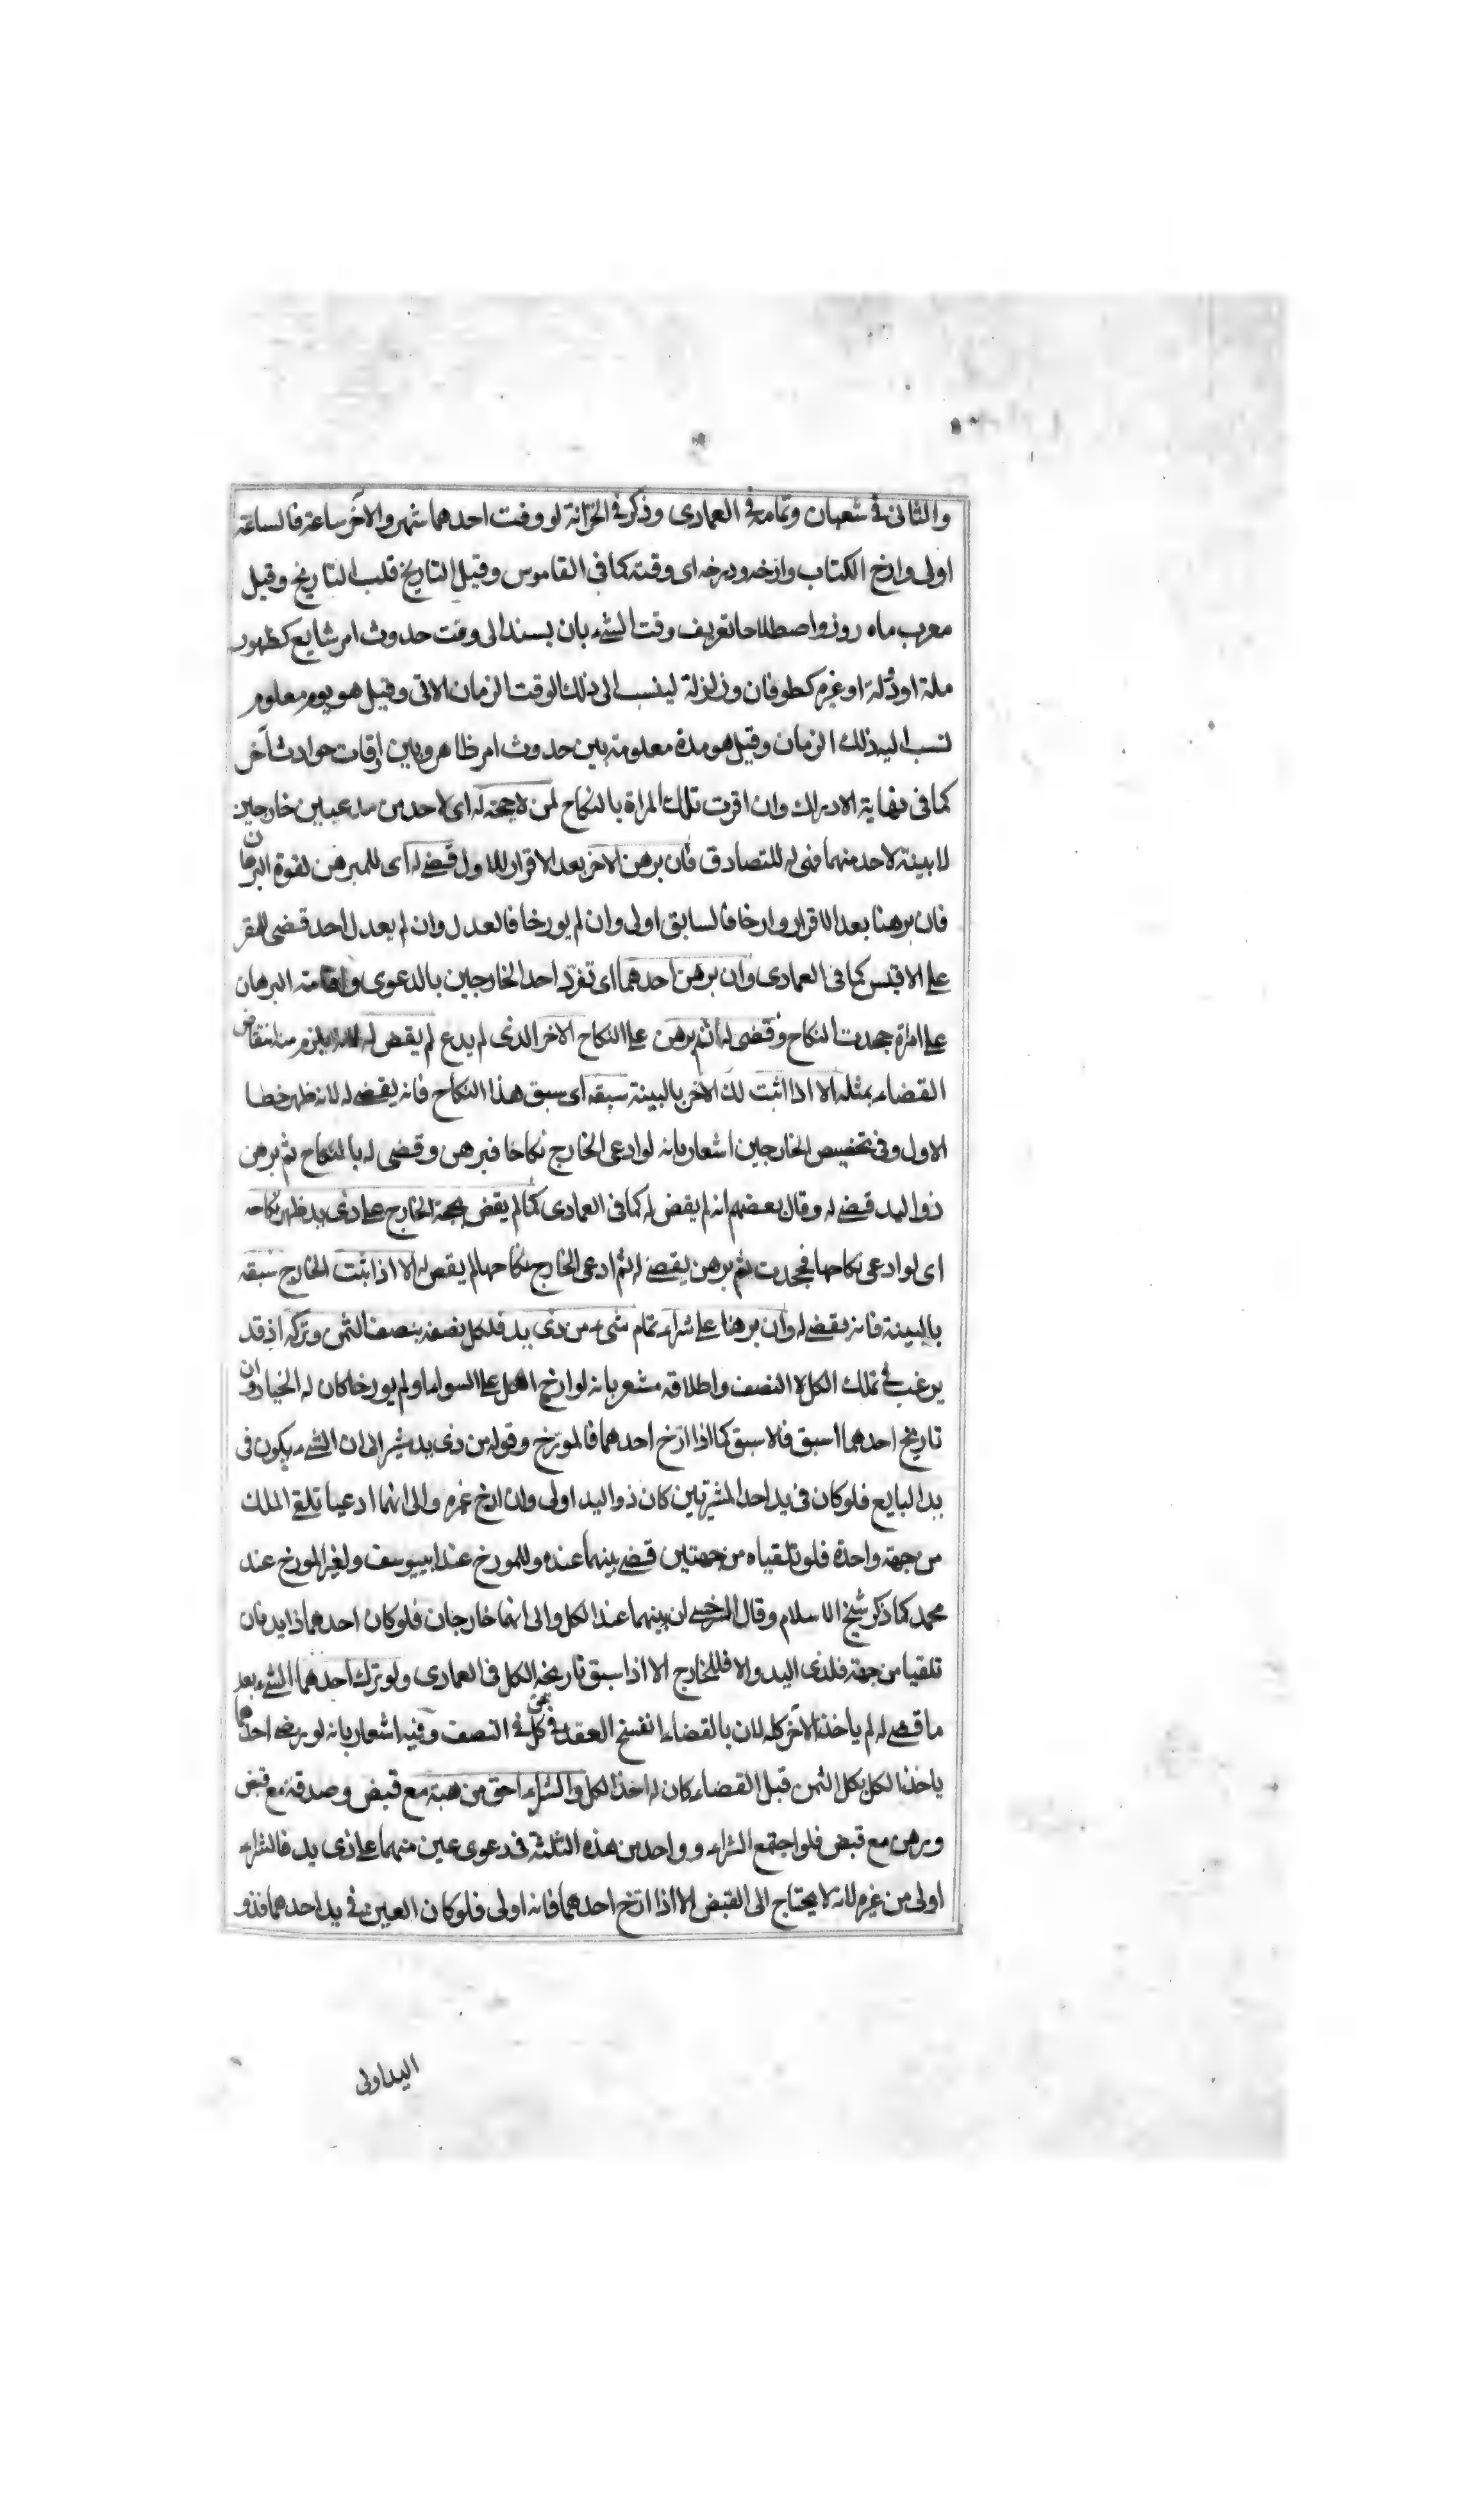 والثانى فى شعبان وتمامه فى العمادى وذكر فى الخزانة لو وقت احدهما شهر والآخر ساعة فالساعة
اولى وارخ الكتاب وارخه وورخه اى وقته كما فى القاموس وقيل التاريخ قلب التاريخ وقيل
معرب ماه روز واصطلاحا تعريف وقت الشئ بان يسند الى وقت حدوث امر شايع كظهور
ملة او دولة او غيره كطوفان وزلزلة لينسب الى ذلك الوقت الزمان الاتى وقيل هو يوم معلوم
نسب اليه ذلك الزمان وقيل هو مدة معلومة بين حدوث امر ظاهر وبين اوقات حوادث آخر
كما فى نهاية الادراك وان اقرت تلك المراة بالنكاح لمن لا حجة له اى لاحد من مدعيين خارجين
لا بينة لاحد منهما فهى له للتصادق فان برهن الاخر بعد الاقرار للاول قضى له اى للمبرهن لقوة البرهان
فان برهنا بعد الاقرار وارخا فالسابق اولى وان لم يورخا فالعدل وان لم يعدل احد قضى للمقر
على الاقيس كما فى العمادى وان برهن احدهما اى تفرد احد الخارجين بالدعوى واقامة البرهان
على امراة جحدت النكاح وقضى له ثم برهن على النكاح الاخر الذى لم يدع لم يقض له لئلا يلزم منه انتقاض
القضاء بمثله الا اذا اثبت ذلك الآخر بالبينة سبقه اى سبق هذا النكاح فانه يقضى له لانه ظهر خطا
الاول وفى تخصيص الخارجين اشعار بانه لو ادعى الخارج نكاحا فبرهن وقضى له بالنكاح ثم برهن
ذو اليد قضى له وقال بعضهم انه لم يقض له كما فى العمادى كما لم يقض بحجة الخارج على ذى يد ظهر نكاحه
اى لو ادعى نكاحها فجحدت ثم برهن يقضى له ثم ادعى الخارج نكاحها لم يقض له الا اذا اثبت الخارج سبقه
بالبينة فانه يقضى له وان برهنا على شراء تمام شىء من ذى يد فلكل نصفه بنصف الثمن وتركه اذ قد
يرغب فى تملك الكل لا النصف واطلاقه مشعر بانه لو ارخ الكل على السواء او لم يورخا كان له الخيار وان
تاريخ احدهما اسبق فالاسبق كما اذا ارخ احدهما فالمورخ وقوله من ذى يد يشير الى ان الشئ يكون فى
يد البايع فلو كان فى يد احد المشتريين كان ذو اليد اولى وان ارخ غيره والى انهما ادعيا تلقى الملك
من جهة واحدة فلو تلقياه من جهتين قضى بينهما عنده وللمورخ عند ابييوسف ولغير المورخ عند
محمد كما ذكر شيخ الاسلام وقال السرخسى ان بينهما عند الكل والى انهما خارجان فلو كان احدهما ذا يد فان
تلقيا من جهة فلذى اليد والا فللخارج الا اذا سبق تاريخه الكل فى العمادى ولو ترك احدهما الشئ بعد
ما قضى له لم ياخذ الآخر كله لان بالقضاء انفسخ العقد فى كل فى النصف وفيه اشعار بانه لو يرضى احدهما
ياخذ الكل بكل الثمن قبل القضاء كان له اخذ الكل والشراء احق من هبة مع قبض وصدقة مع قبض
ورهن مع قبض فلو اجتمع الشراء وواحد من هذه الثلثة فى دعوى عين منهما على ذى يد فالشراء
اولى من غيره لانه لا يحتاج الى القبض الا اذا ارخ احدهما فانه اولى فلو كان العين فى يد احدهما فذو
اليد اولى